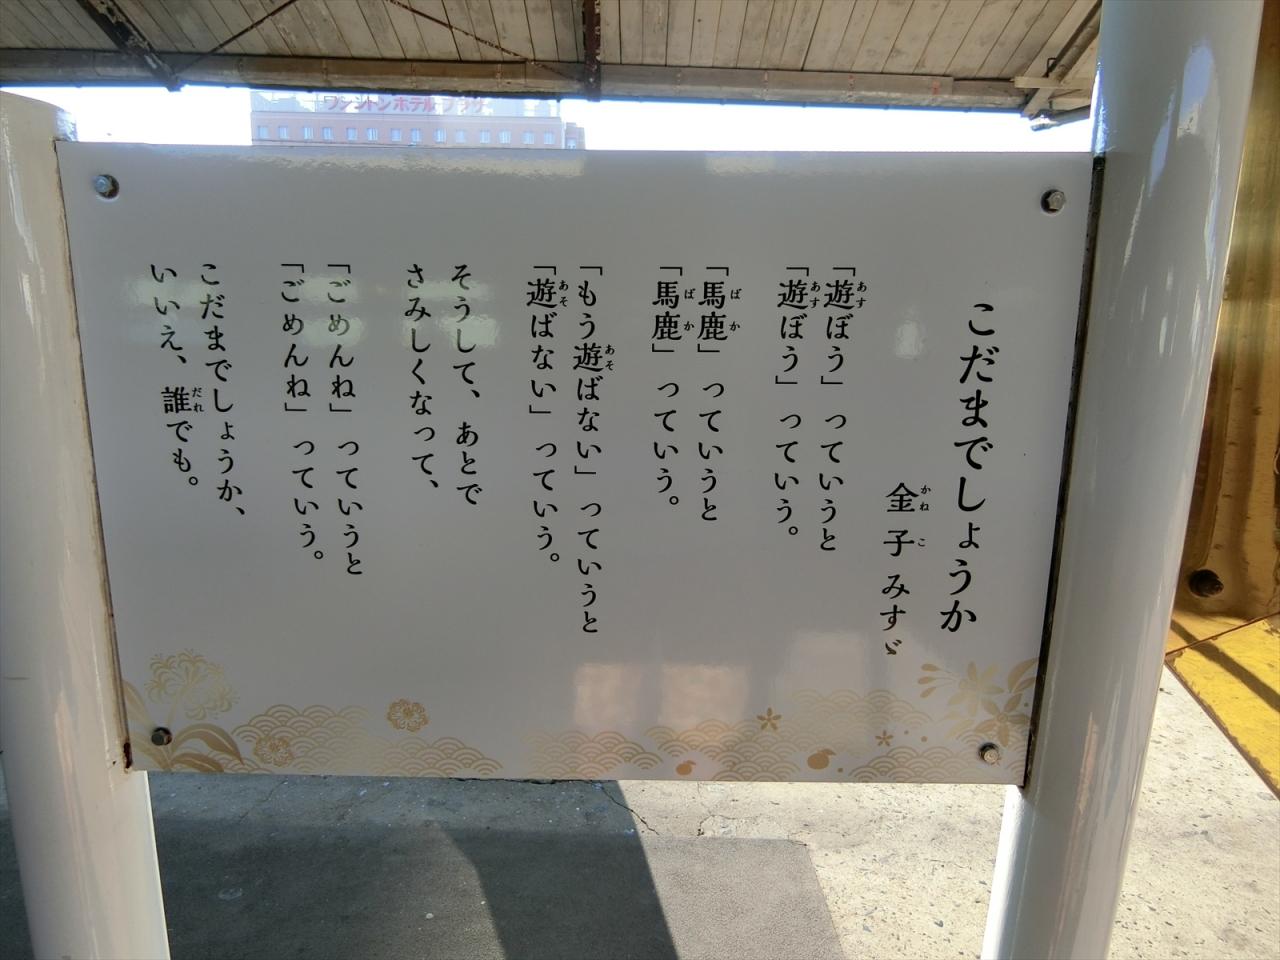 ワシントンホテルプラザ
こだまでしょうか
金子みすゞ
「遊ぼう」っていうと
「遊ぼう」っていう。
「馬鹿」っていうと
「馬鹿」っていう。
「もう遊ばない」っていうと
「遊ばない」っていう。
そうして、あとで
さみしくなって、
「ごめんね」っていうと
「ごめんね」っていう。
こだまでしょうか、
いいえ、誰でも。